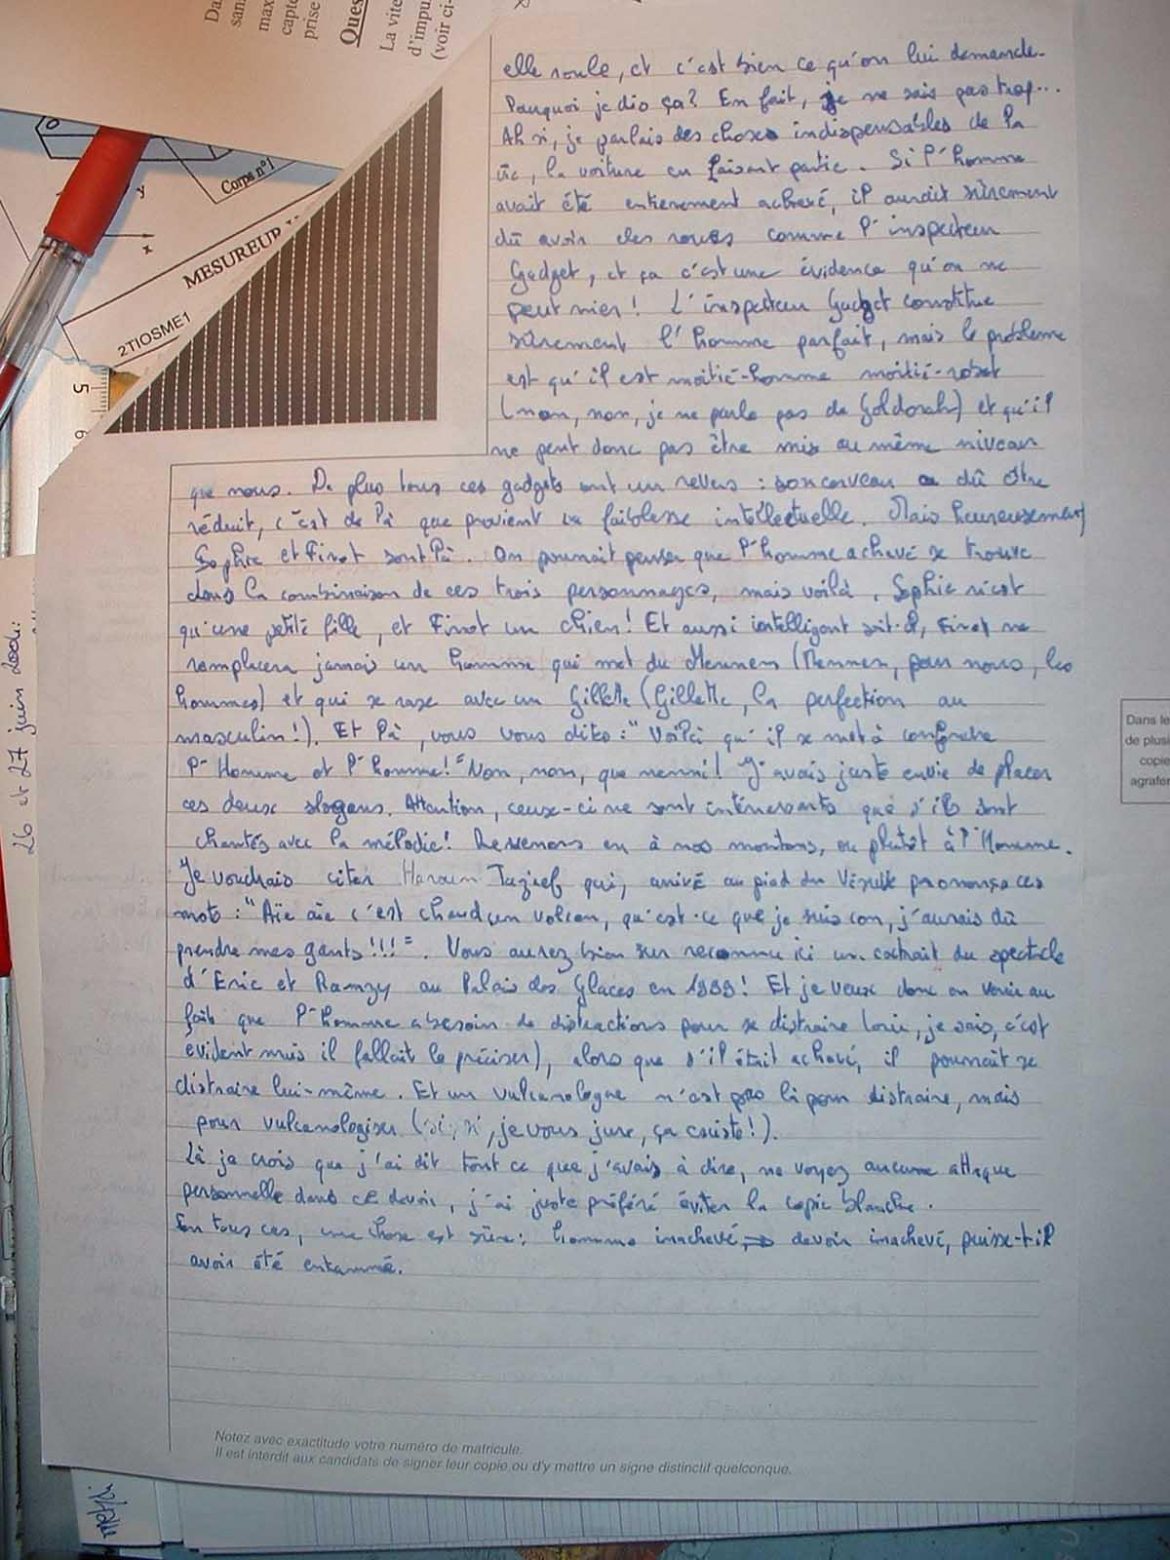 Da
san
max
capte
prise
Ques
La vite
d'impu
(voir ci-
Corps n°1
y
x
MESUREUR
2TIOSME1
5
6
26 et 27 juin
elle roule, et c'est bien ce qu'on lui demande.
Pourquoi je dis ça? En fait, je ne sais pas trop...
Ah si, je parlais des choses indispensables de la
vie, la voiture en faisant partie. Si l'homme
avait été entièrement achevé, il aurait sûrement
dû avoir des roues comme l'inspecteur
Gadget, et ça c'est une évidence qu'on ne
peut nier! L'inspecteur Gadget constitue
sûrement l'homme parfait, mais le problème
est qu'il est moitié-homme moitié-robot
(non, non, je ne parle pas de Goldorak) et qu'il
ne peut donc pas être mis au même niveau
que nous. De plus tous ces gadgets ont un revers : son cerveau a dû être
réduit, c'est de là que provient sa faiblesse intellectuelle. Mais heureusement
Sophie et Finot sont là. On pourrait penser que l'homme achevé se trouve
dans la combinaison de ces trois personnages, mais voilà, Sophie n'est
qu'une petite fille, et Finot un chien! Et aussi intelligent soit-il, Finot ne
remplacera jamais un homme qui met du Mennen (Mennen, pour nous, les
hommes) et qui se rase avec un Gillette (Gillette, la perfection au
masculin!). Et là, vous vous dites : "Voilà qu'il se met à confondre
l'Homme et l'homme!" Non, non, que nenni! J'avais juste envie de placer
ces deux slogans. Attention, ceux-ci ne sont intéressants que s'ils sont
chantés avec la mélodie! Revenons en à nos moutons, ou plutôt à l'Homme.
Je voudrais citer Haroun Tazieff qui, arrivé au pied du Vésuve prononça ces
mots : "Aïe aïe c'est chaud un volcan, qu'est-ce que je suis con, j'aurais dû
prendre mes gants!!!". Vous aurez bien sur reconnu ici un extrait du spectacle
d'Eric et Ramzy au Palais des Glaces en 1999! Et je veux donc en venir au
fait que l'homme a besoin de distractions pour se distraire (oui, je sais, c'est
evident mais il fallait le préciser), alors que s'il était achevé, il pourrait se
distraire lui-même. Et un vulcanologue n'est pas là pour distraire, mais
pour vulcanologiser (si, si, je vous jure, ça existe!).
Là je crois que j'ai dit tout ce que j'avais à dire, ne voyez aucune attaque
personnelle dans ce devoir, j'ai juste préféré éviter la copie blanche.
En tous cas, une chose est sûre : homme inachevé, ⇒ devoir inachevé, puisse-t-il
avoir été entammé.
Dans le
de plusi
copie
agrafer
Notez avec exactitude votre numéro de matricule.
Il est interdit aux candidats de signer leur copie ou d'y mettre un signe distinctif quelconque.